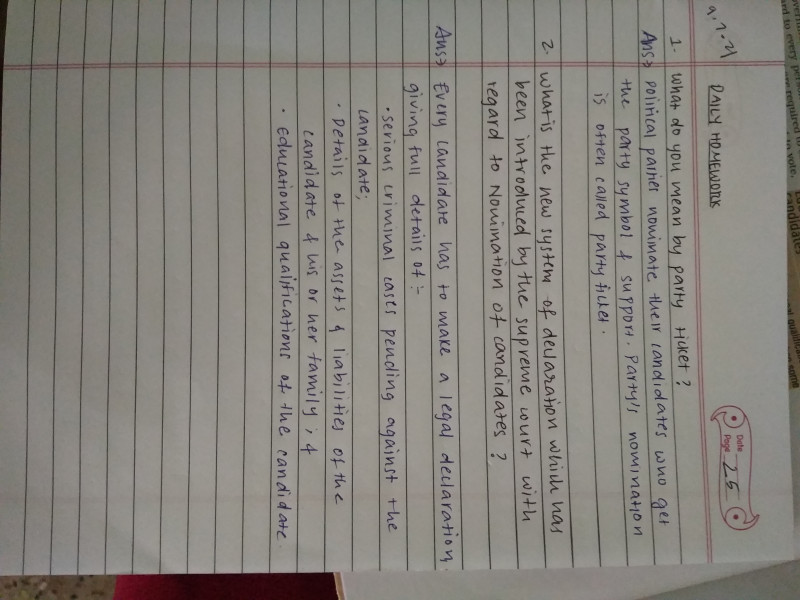 9.7.21
DAILY HOMEWORK
Date
Page 25
1. What do you mean by party ticket?
Ans→ Political parties nominate their candidates who get
the party symbol & support. Party's nomination
is often called party ticket.
2. What is the new system of declaration which has
been introduced by the supreme court with
regard to Nomination of candidates?
Ans→ Every candidate has to make a legal declaration,
giving full details of :-
• serious criminal cases pending against the
candidate;
• Details of the assets & liabilities of the
candidate & his or her family; &
• Educational qualifications of the candidate.